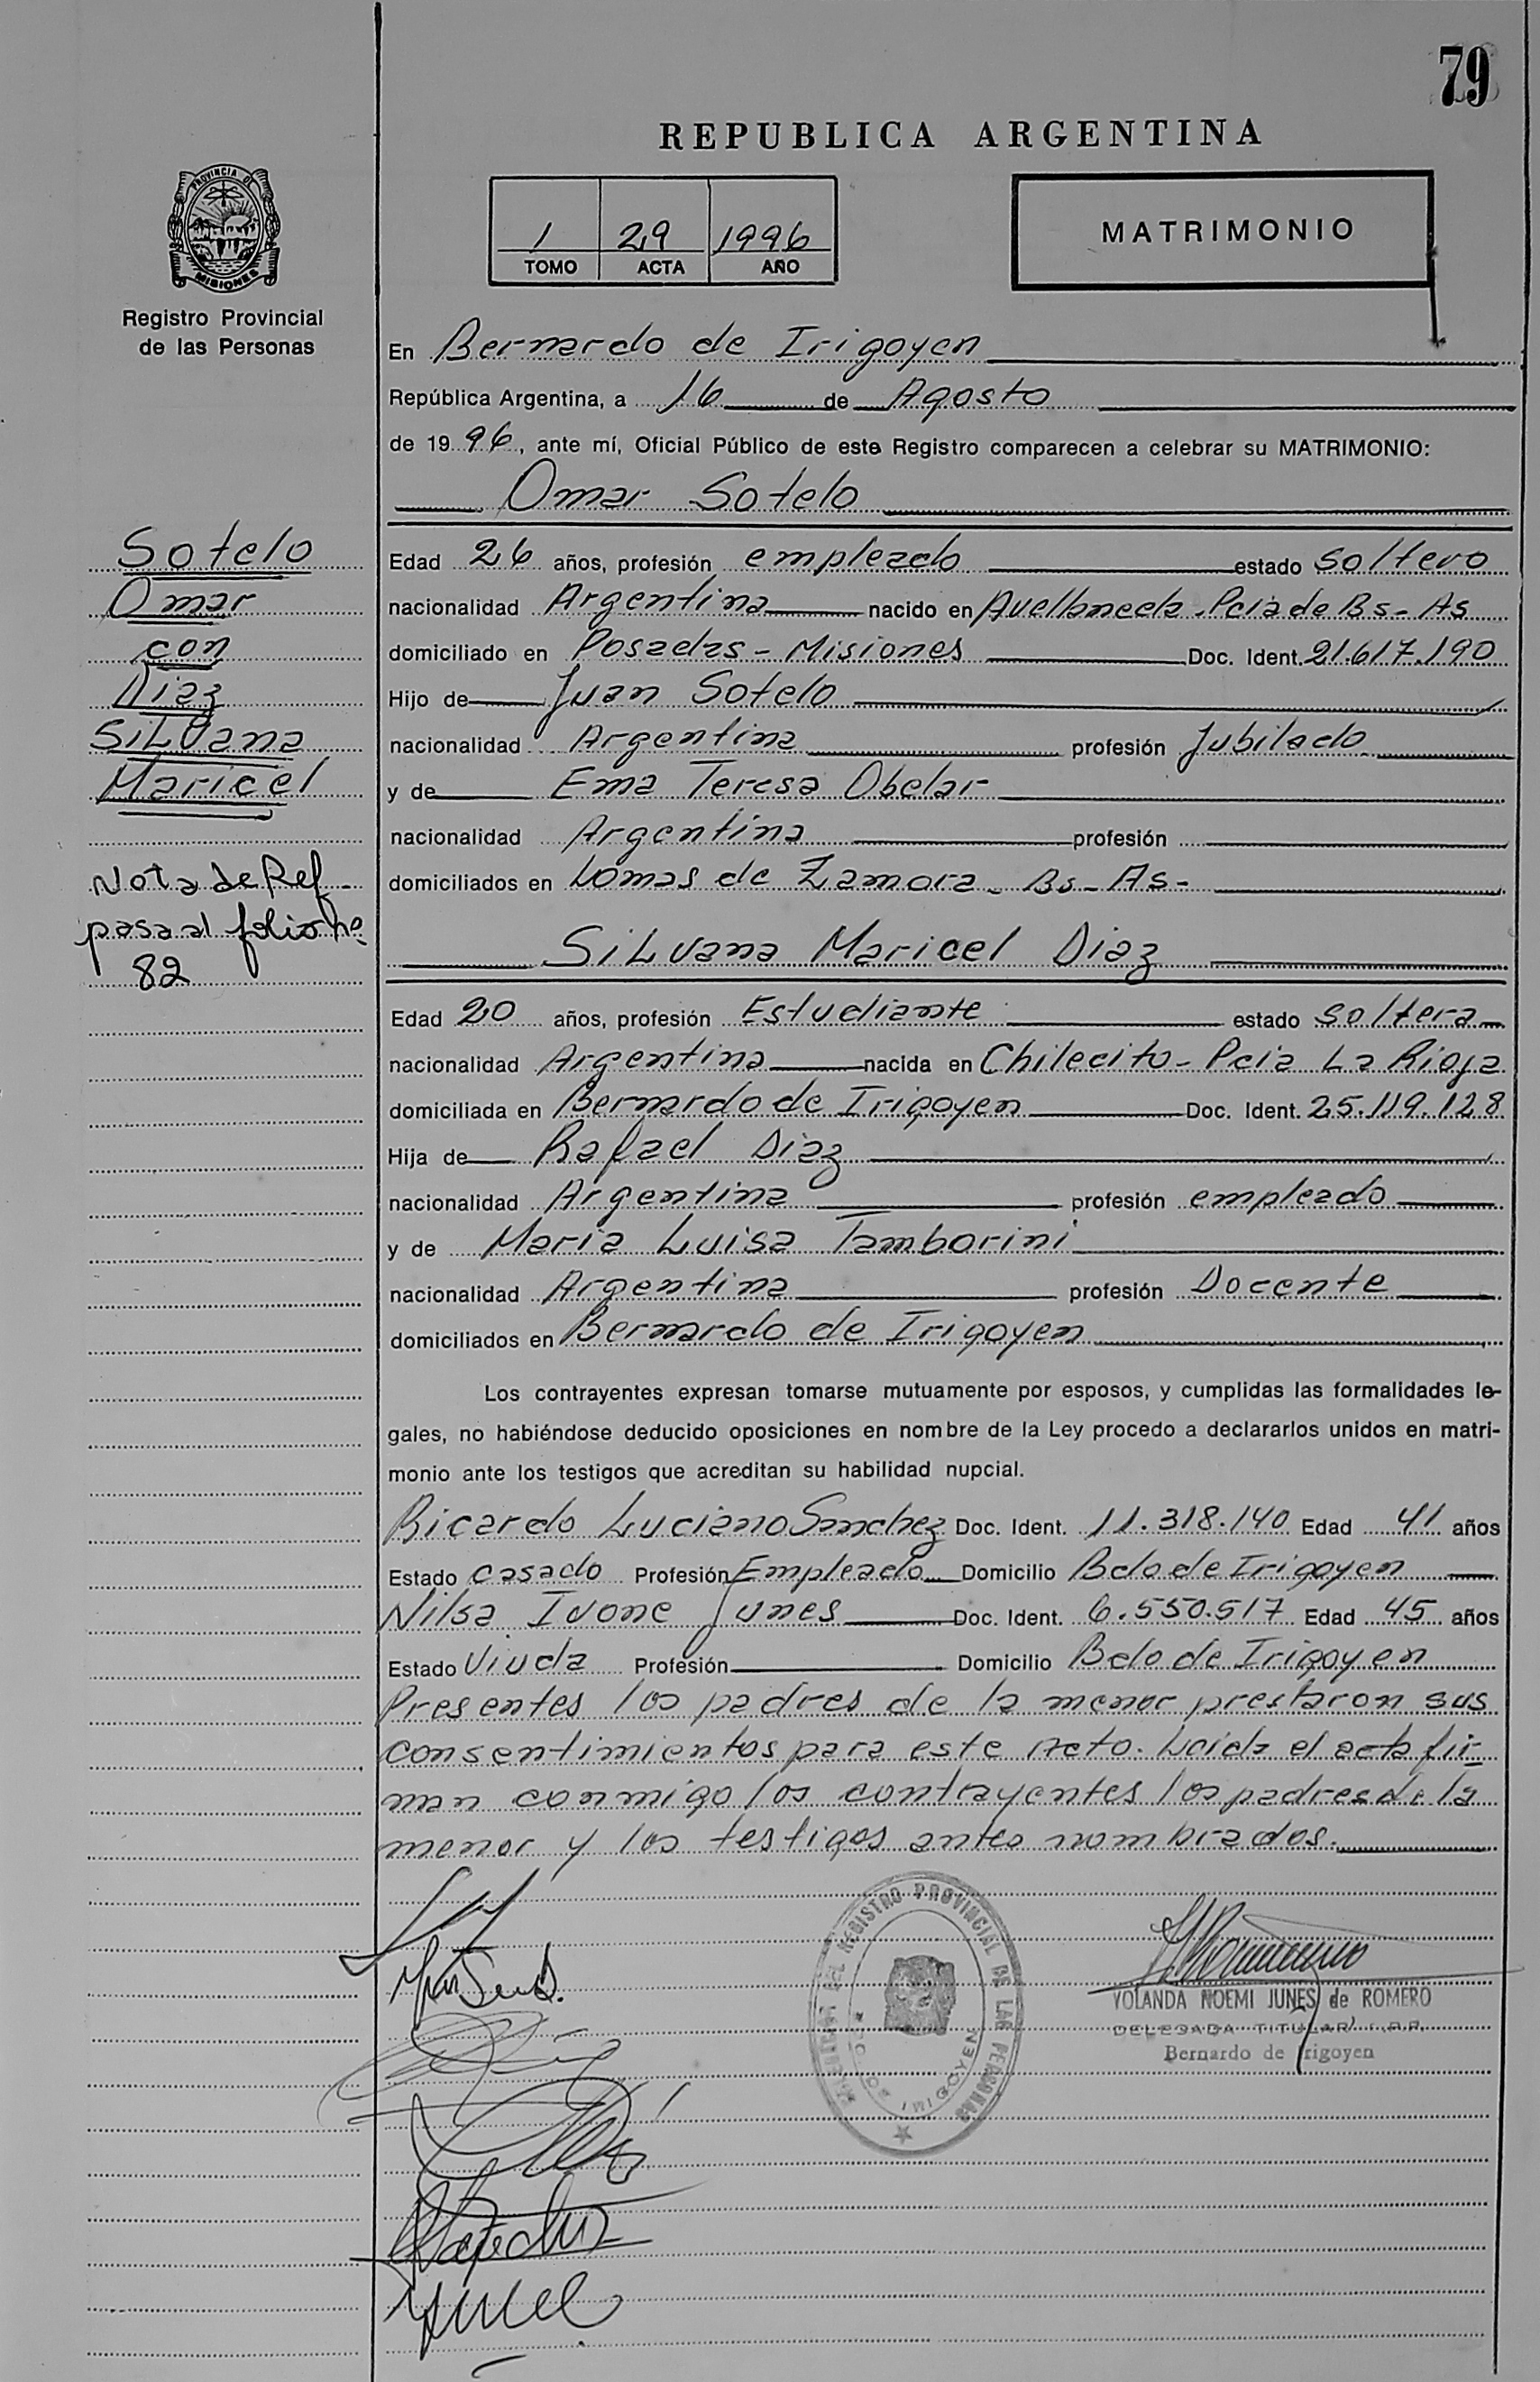 79
REPUBLICA ARGENTINA
PROVINCIA DE
MISIONES
Registro Provincial
de las Personas
1 29 1996
TOMO ACTA AÑO
MATRIMONIO
En Bernardo de Irigoyen
República Argentina, a 16 de Agosto
de 1996, ante mí, Oficial Público de este Registro comparecen a celebrar su MATRIMONIO:
Omar Sotelo
Sotelo
Omar
con
Diaz
SiLvana
Maricel
Nota de Ref
pasa al folio no
82
Edad 26 años, profesión empleado estado soltero
nacionalidad Argentina nacido en Avellaneda - Pcia de Bs - As
domiciliado en Posadas - Misiones Doc. Ident. 21.617.190
Hijo de Juan Sotelo
nacionalidad Argentina profesión Jubilado
y de Ema Teresa Obelar
nacionalidad Argentina profesión
domiciliados en Lomas de Zamora - Bs - As -
SiLvana Maricel Diaz
Edad 20 años, profesión Estudiante estado soltera
nacionalidad Argentina nacida en Chilecito - Pcia La Rioja
domiciliada en Bernardo de Irigoyen Doc. Ident. 25.119.128
Hija de Rafael Diaz
nacionalidad Argentina profesión empleado
y de Maria Luisa Tamborini
nacionalidad Argentina profesión Docente
domiciliados en Bernardo de Irigoyen
Los contrayentes expresan tomarse mutuamente por esposos, y cumplidas las formalidades le-
gales, no habiéndose deducido oposiciones en nombre de la Ley procedo a declararlos unidos en matri-
monio ante los testigos que acreditan su habilidad nupcial.
Ricardo Luciano Sanchez Doc. Ident. 11.318.140 Edad 41 años
Estado casado Profesión Empleado Domicilio Bdo de Irigoyen
Nilsa Ivone Junes Doc. Ident. 6.550.517 Edad 45 años
Estado Viuda Profesión Domicilio Bdo de Irigoyen
Presentes los padres de la menor prestaron sus
consentimientos para este Acto. Leida el acta fir-
man conmigo los contrayentes los padres de la
menor y los testigos antes nombrados.
DEL REGISTRO PROVINCIAL DE LAS PERSONAS
BDO. DE IRIGOYEN
YOLANDA NOEMI JUNES de ROMERO
DELEGADA TITULAR R.P.P.
Bernardo de Irigoyen